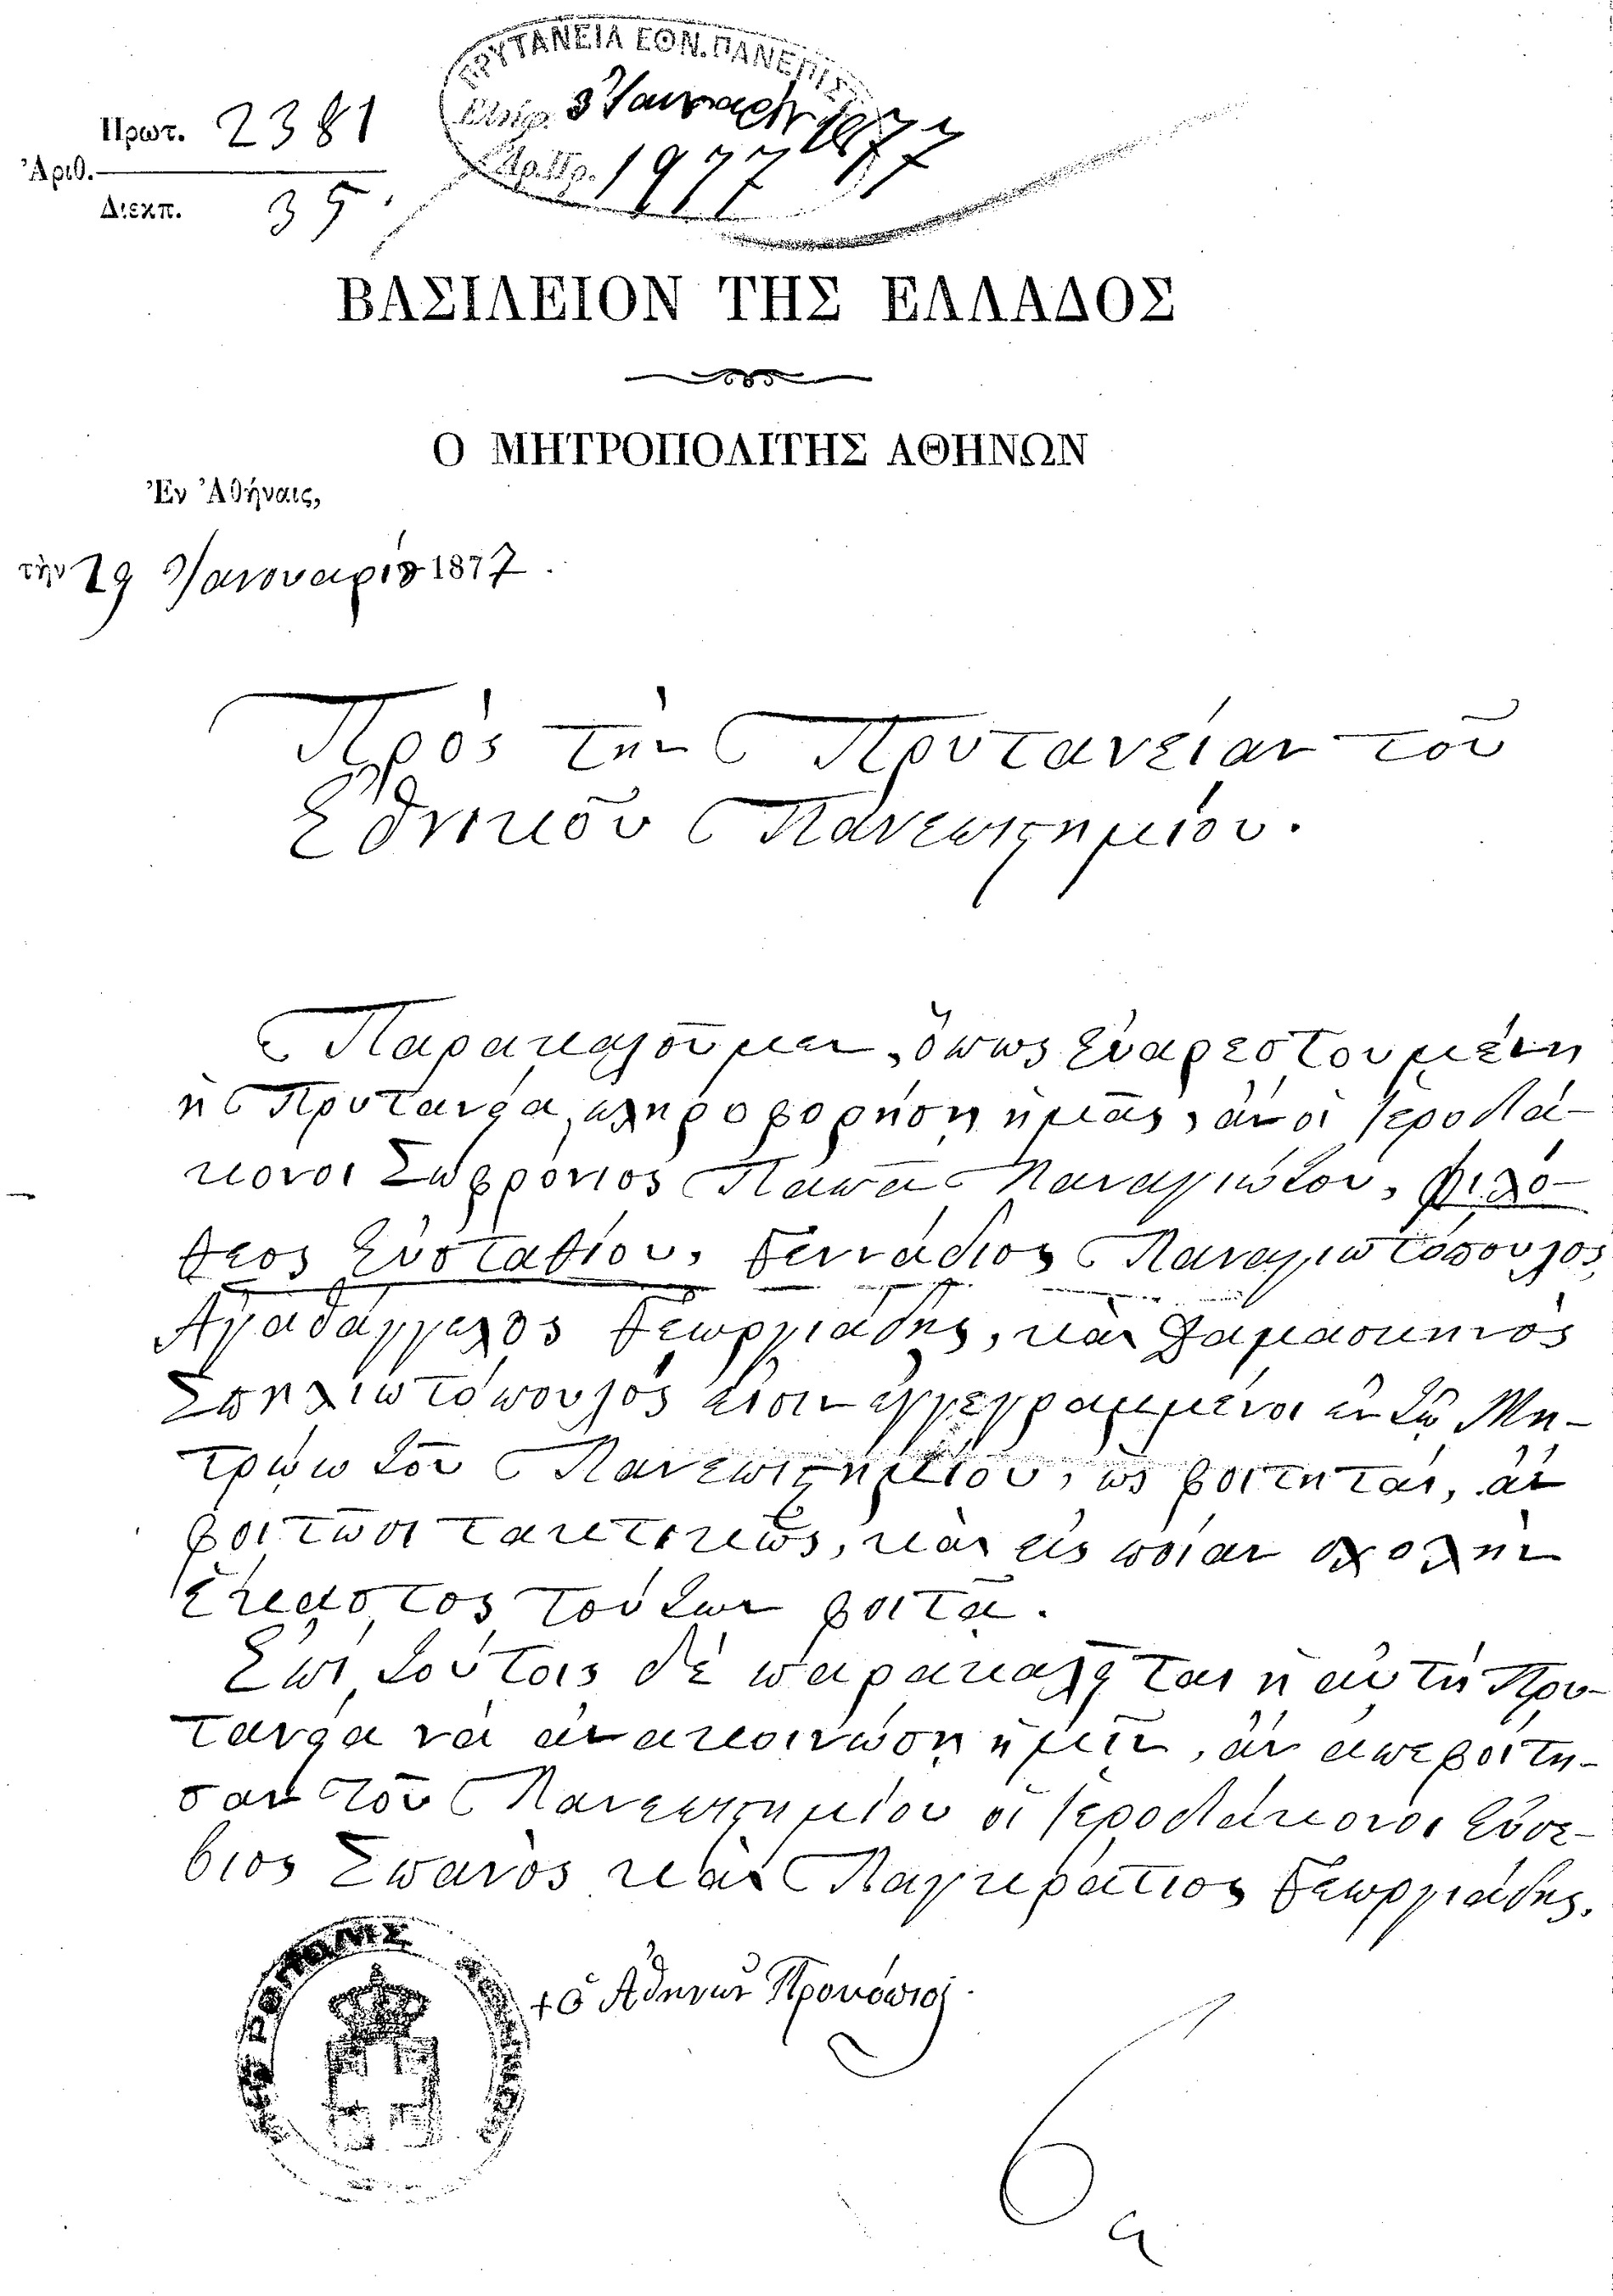 ΠΡΥΤΑΝΕΙΑ ΕΘΝ. ΠΑΝΕΠΙΣ
Πρωτ. 2381
Ἀριθ.
Διεκπ. 35
Ἀρ. Πρ. 1977
1877
ΒΑΣΙΛΕΙΟΝ ΤΗΣ ΕΛΛΑΔΟΣ
Ο ΜΗΤΡΟΠΟΛΙΤΗΣ ΑΘΗΝΩΝ
Ἐν Ἀθήναις,
τὴν 29 Ἰανουαρίου 1877.
Πρὸς τὴν Πρυτανείαν τοῦ
Ἐθνικοῦ Πανεπιστημίου.
Παρακαλοῦμεν, ὅπως εὐαρεστουμένη
ἡ Πρυτανεία πληροφορήσῃ ἡμᾶς, ἂν οἱ ἱεροδιά-
κονοι Σωφρόνιος Παπᾶ Παναγιώτου, Φιλό-
θεος Εὐσταθίου, Γεννάδιος Παναγιωτόπουλος,
Ἀγαθάγγελος Γεωργιάδης, καὶ Δαμασκηνὸς
Σπηλιωτόπουλος εἰσὶν ἐγγεγραμμένοι ἐν τῷ Μη-
τρώῳ τοῦ Πανεπιστημίου, ὡς φοιτηταί, ἂν
φοιτῶσι τακτικῶς, καὶ εἰς ποίαν σχολὴν
ἕκαστος τούτων φοιτᾷ.
Ἐπὶ τούτοις δὲ παρακαλεῖται ἡ αὐτὴ Πρυ-
τανεία νὰ ἀνακοινώσῃ ἡμῖν, ἂν ἀπεφοίτη-
σαν τοῦ Πανεπιστημίου οἱ ἱεροδιάκονοι Εὐσέ-
βιος Σπανὸς καὶ Παγκράτιος Γεωργιάδης.
+ ὁ Ἀθηνῶν Προκόπιος